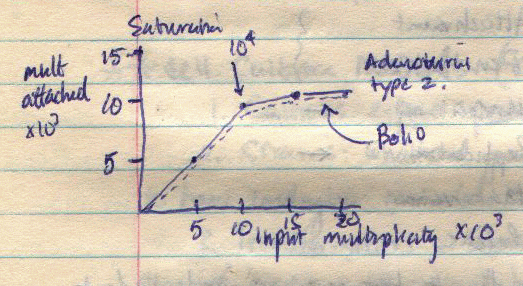 Saturation
15
10⁴
mult
attached
x10³
10
5
Adenovirus
type 2.
5
10
15
20
Input multiplicity x10³